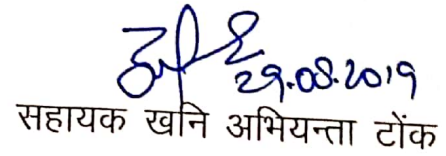 29.08.2019
सहायक खनि अभियन्ता टोंक